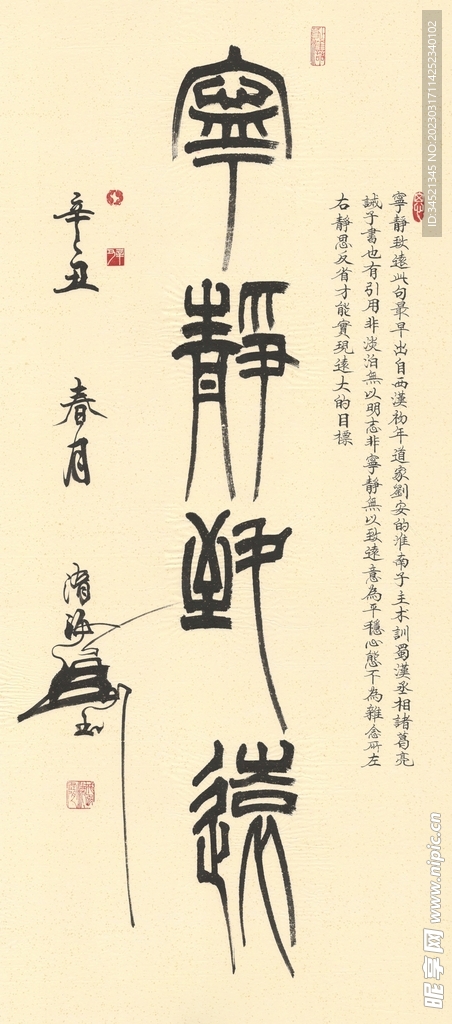 寧靜致遠此句最早出自西漢初年道家劉安的淮南子主术訓蜀漢丞相諸葛亮
誡子書也有引用非淡泊無以明志非寧靜無以致遠意為平穩心態不為雜念所左
右靜思反省才能實現遠大的目標
寧靜致遠
辛丑 春月
ID:34521345 NO:20230317114252340102
昵享网 www.nipic.cn